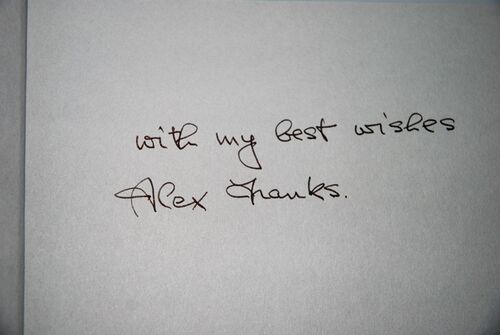 with my best wishes
Alex Thanks.